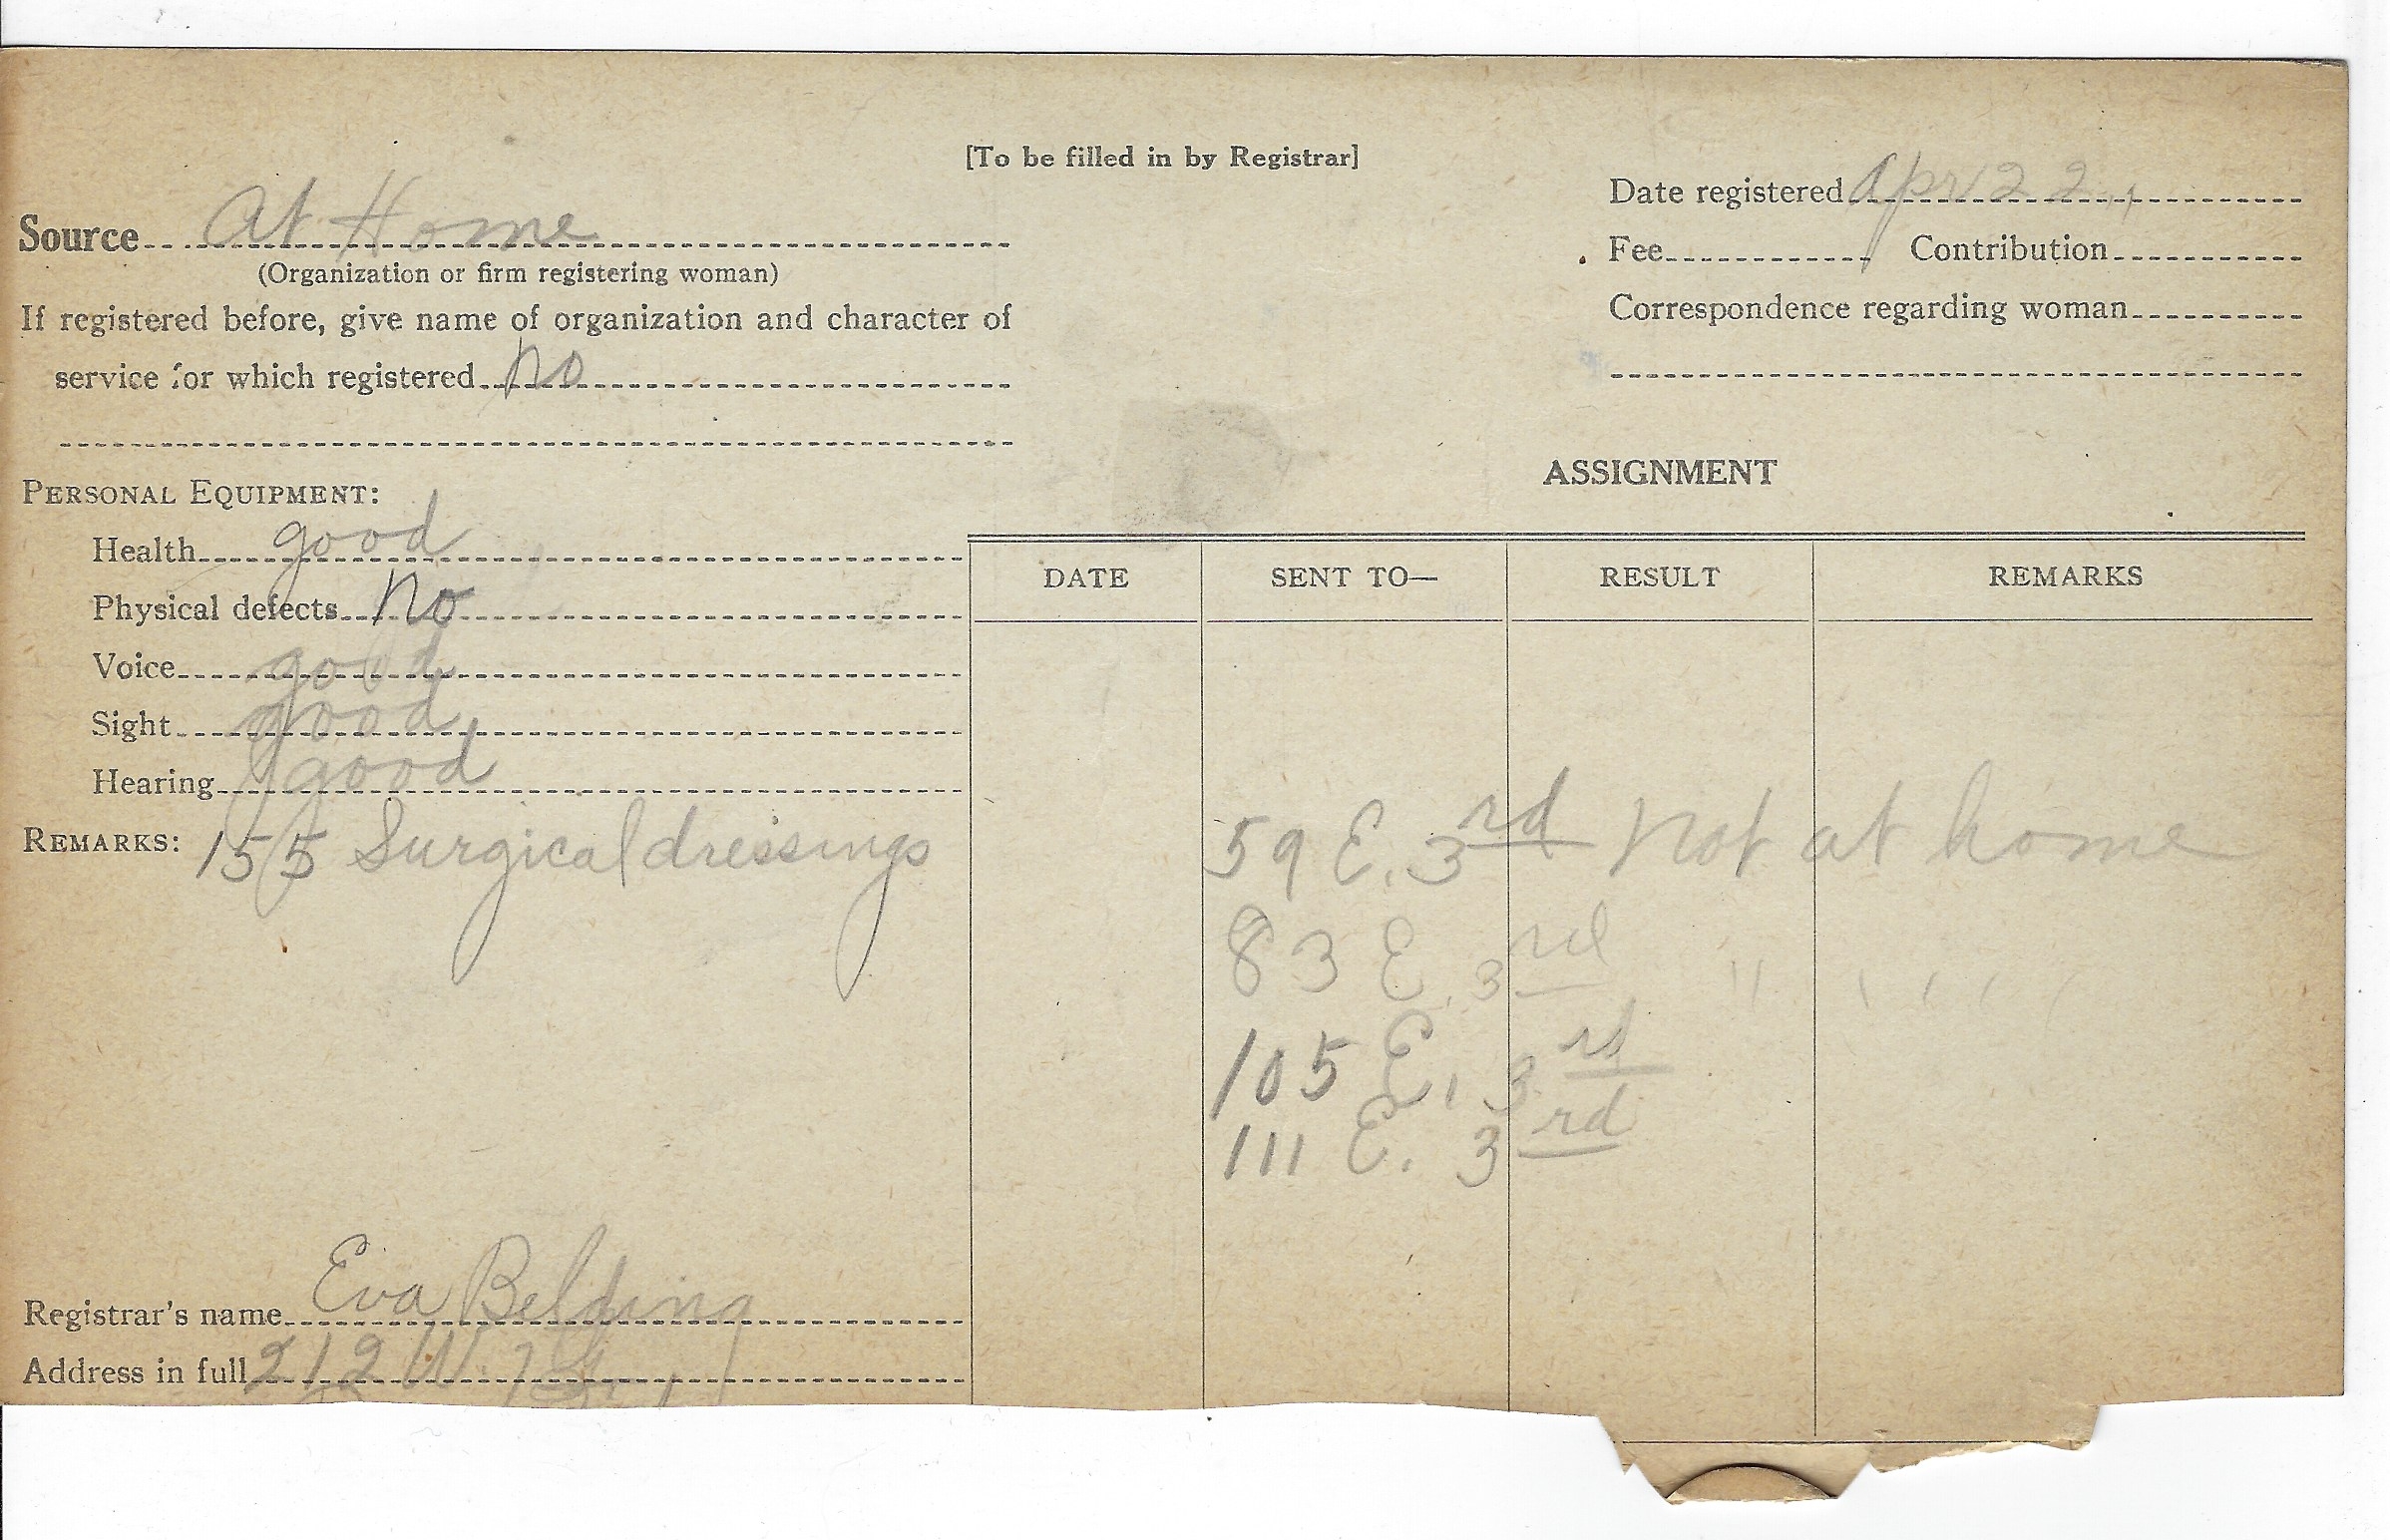 [To be filled in by Registrar]
Source At Home
(Organization or firm registering woman)
If registered before, give name of organization and character of
service for which registered no
Date registered Apr 22
Fee Contribution
Correspondence regarding woman
PERSONAL EQUIPMENT:
Health good
Physical defects no
Voice good
Sight good
Hearing good
REMARKS: 155 Surgical dressings
Registrar's name Eva Belding
Address in full 212 W.
ASSIGNMENT
DATE SENT TO— RESULT REMARKS
59 E. 3rd Not at home
83 E. 3rd " " " "
105 E. 3rd
111 E. 3rd